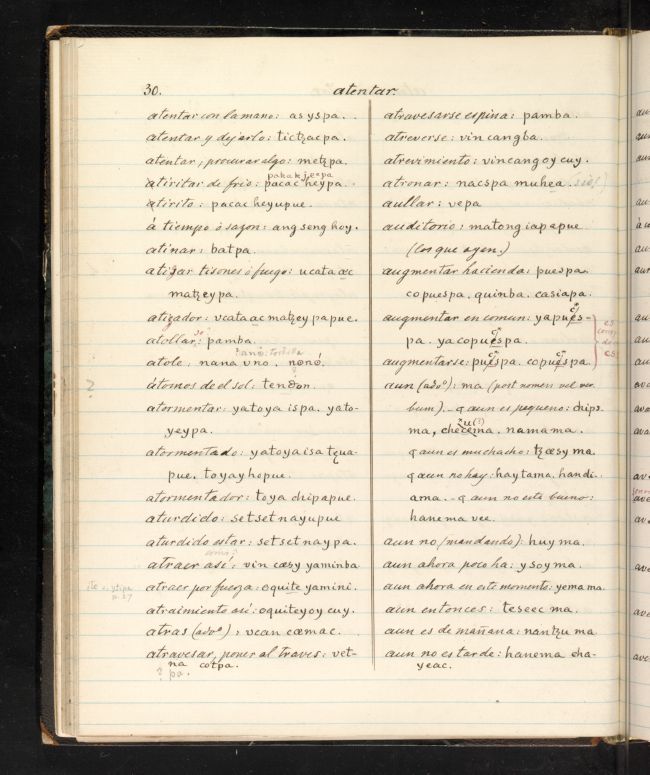 30.
atentar.
atentar con la mano: asyspa.
atentar y dejarlo: tictzacpa.
atentar, procurar algo: metzpa.
pakakjeepa
atiritar de frio: pacac heypa.
atirito: pacac heyupue.
á tiempo ó sazon: angsenghoy.
atinar: batpa.
atizar tisones ó fuego: ucata ac
matzeypa.
atizador: vcataac matzeypapue.
atollar: pamba.
atole: nana vno. nonó.
?
átomos de el sol: tenón.
atormentar: yatoya ispa. yato-
yeypa.
atormentado: yatoyaisa tçua-
pue. toyayhopue.
atormentador: toya chipapue.
aturdido: setsetnayupue
aturdido estar: setsetnaypa.
atraer así: vin cæsy yaminba
atraer por fuerza: oquite yamini.
p. 27
atraimiento así: oquiteyoy cuy.
atras (adv.º): vcan cæmac.
atravesar, poner al traves: vet-
na cotpa.
? pa.
atravesarse espina: pamba.
atreverse: vin cangba.
atrevimiento: vincangoy cuy.
atronar: nacspa muhea. (sic!)
aullar: vepa
auditorio: matongiapapue
(los que oyen.)
augmentar hacienda: puespa.
copuespa. quinba. casiapa.
augmentar en comun: yapues-
pa. yacopuespa.
augmentarse: puespa. copuespa.
aun (adv.º): ma (post nomen vel ver
bum). - q aun es pequeno: chips.
zu(?)
ma, checema. namama.
q aun es muchacho: tzæsy ma.
q aun no hay: haytama. handi-
ama. - q aun no este bueno:
hanema vee.
aun no (mandando): huy ma.
aun ahora poco ha: ysoy ma.
aun ahora en este momento: yema ma.
aun entonces: teseec ma.
aun es de mañana: nantzu ma
aun no es tarde: hanema cha-
yeac.